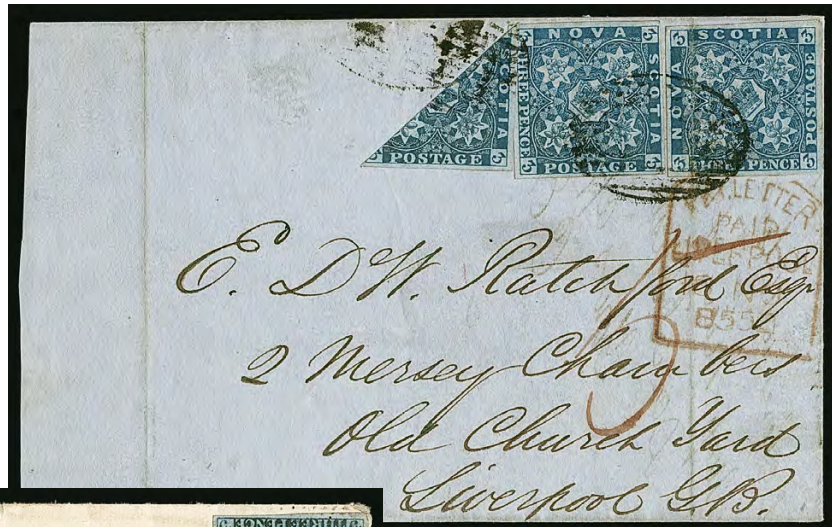 SCOTIA
POSTAGE
NOVA
THREE PENCE
SCOTIA
POSTAGE
SCOTIA
NOVA
POSTAGE
THREE PENCE
LETTER
PAID
E. D W. Ratchford Esqr
2 Mersey Chambers
Old Church Yard
Liverpool G.B.